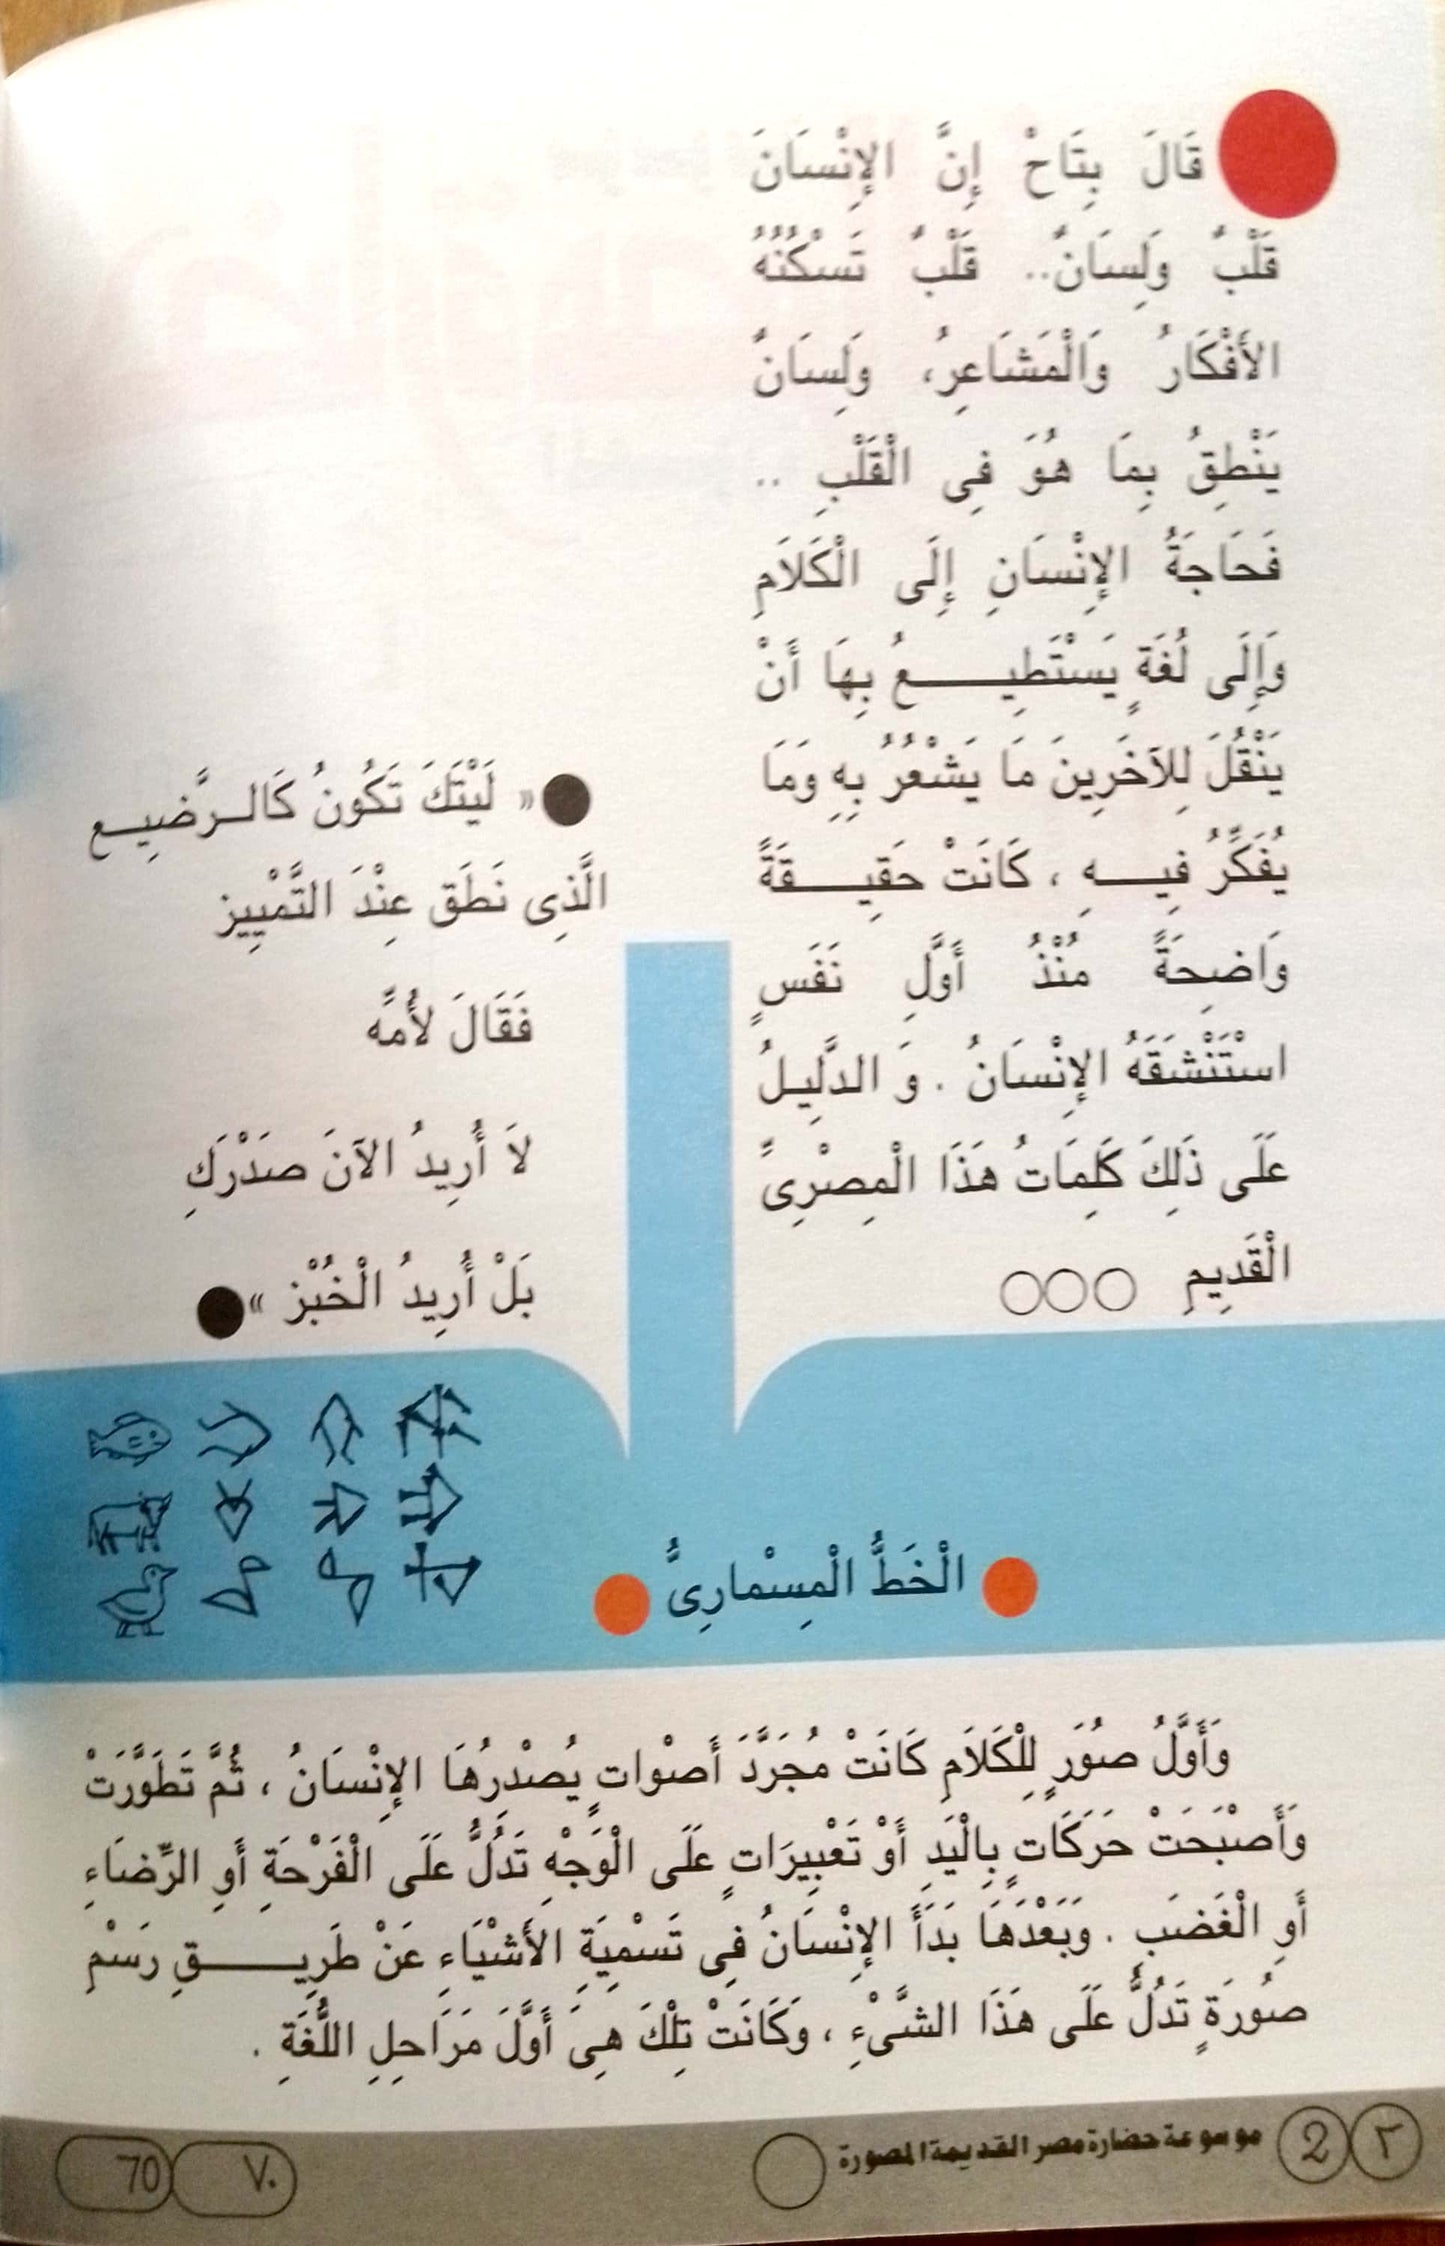 قَالَ بِتَاحْ إِنَّ الإِنْسَانَ
قَلْبٌ وَلِسَانٌ.. قَلْبٌ تَسْكُنُهُ
الأَفْكَارُ وَالْمَشَاعِرُ، وَلِسَانٌ
يَنْطِقُ بِمَا هُوَ فِى الْقَلْبِ ..
فَحَاجَةُ الإِنْسَانِ إِلَى الْكَلَامِ
وَإِلَى لُغَةٍ يَسْتَطِيــــعُ بِهَا أَنْ
يَنْقُلَ لِلآخَرِينَ مَا يَشْعُرُ بِهِ وَمَا
يُفَكِّرُ فِيــــهِ ، كَانَتْ حَقِيــــقَةً
وَاضِحَةً مُنْذُ أَوَّلِ نَفَسٍ
اسْتَنْشَقَهُ الإِنْسَانُ . وَ الدَّلِيلُ
عَلَى ذَلِكَ كَلِمَاتُ هَذَا الْمِصْرِىِّ
الْقَدِيمِ
« لَيْتَكَ تَكُونُ كَالــرَّضِيــع
الَّذِى نَطَق عِنْدَ التَّمْيِيز
فَقَالَ لأُمِّه
لاَ أُرِيدُ الآنَ صَدْرَكِ
بَلْ أُرِيدُ الْخُبْز »
الْخَطُّ الْمِسْمارِىُّ
وَأَوَّلُ صُوَرٍ لِلْكَلَامِ كَانَتْ مُجَرَّدَ أَصْوَاتٍ يُصْدِرُهَا الإِنْسَانُ ، ثُمَّ تَطَوَّرَتْ
وَأَصْبَحَتْ حَرَكَاتٍ بِالْيَدِ أَوْ تَعْبِيرَاتٍ عَلَى الْوَجْهِ تَدُلُّ عَلَى الْفَرْحَةِ أَوِ الرِّضَاءِ
أَوِ الْغَضَبِ . وَبَعْدَهَا بَدَأَ الإِنْسَانُ فِى تَسْمِيَةِ الأَشْيَاءِ عَنْ طَرِيــــقِ رَسْمِ
صُورَةٍ تَدُلُّ عَلَى هَذَا الشَّىْءِ ، وَكَانَتْ تِلْكَ هِىَ أَوَّلَ مَرَاحِلِ اللُّغَةِ .
٢ 2 موسوعة حضارة مصر القديمة المصورة
٧٠ 70